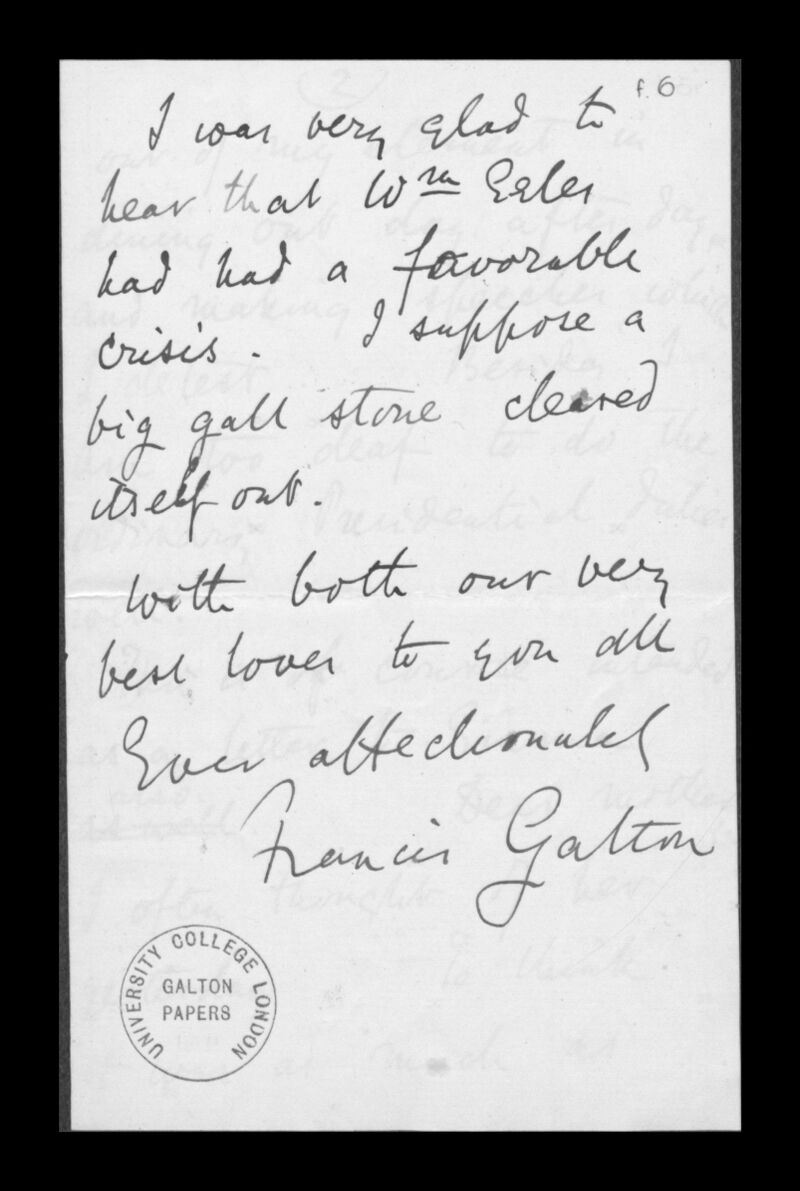 f. 6
I was very glad to
hear that Wm Eeles
had had a favorable
crisis. I suppose a
big gall stone cleared
itself out.
With both our very
best loves to you all
Ever affectionately
Francis Galton
UNIVERSITY COLLEGE LONDON
GALTON
PAPERS